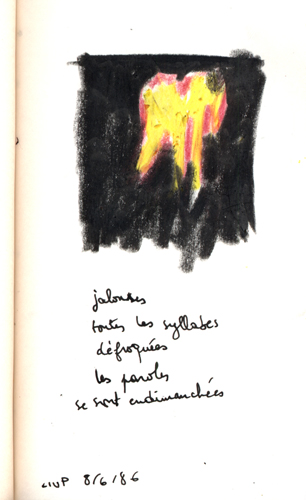 jalouses
toutes les syllabes
défroquées
les paroles
se sont endimanchées
CIUP 8/6/86